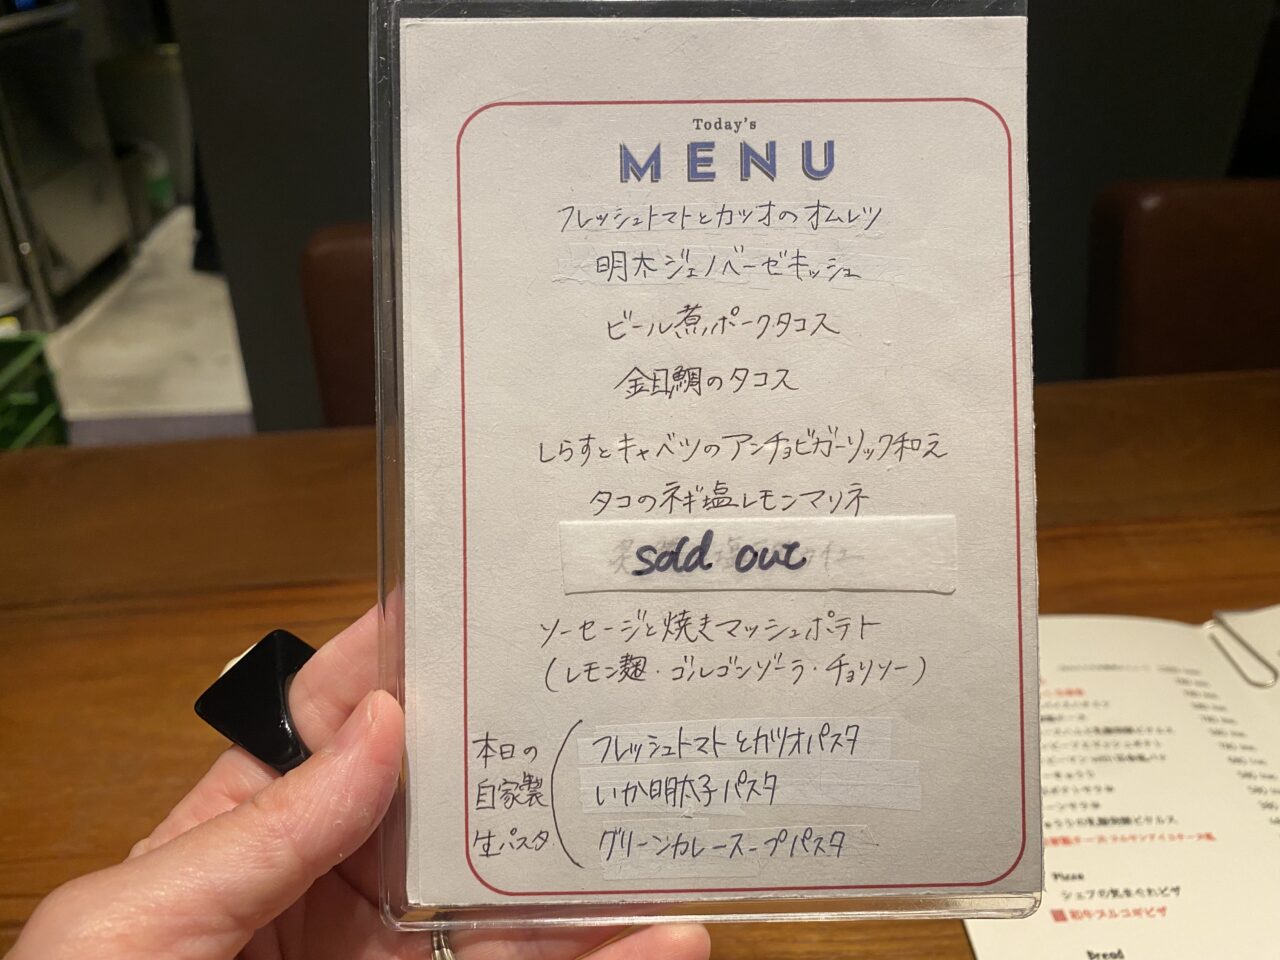 Today's
MENU
フレッシュトマトとカツオのオムレツ
明太ジェノベーゼキッシュ
ビール煮ポークタコス
金目鯛のタコス
しらすとキャベツのアンチョビガーリック和え
タコのネギ塩レモンマリネ
sold out
ソーセージと焼きマッシュポテト
(レモン麹・ゴルゴンゾーラ・チョリソー)
本日の
自家製
生パスタ
フレッシュトマトとカツオパスタ
いか明太子パスタ
グリーンカレースープパスタ
Pizza
シェフの気まぐれピザ
和牛プルコギピザ
Bread